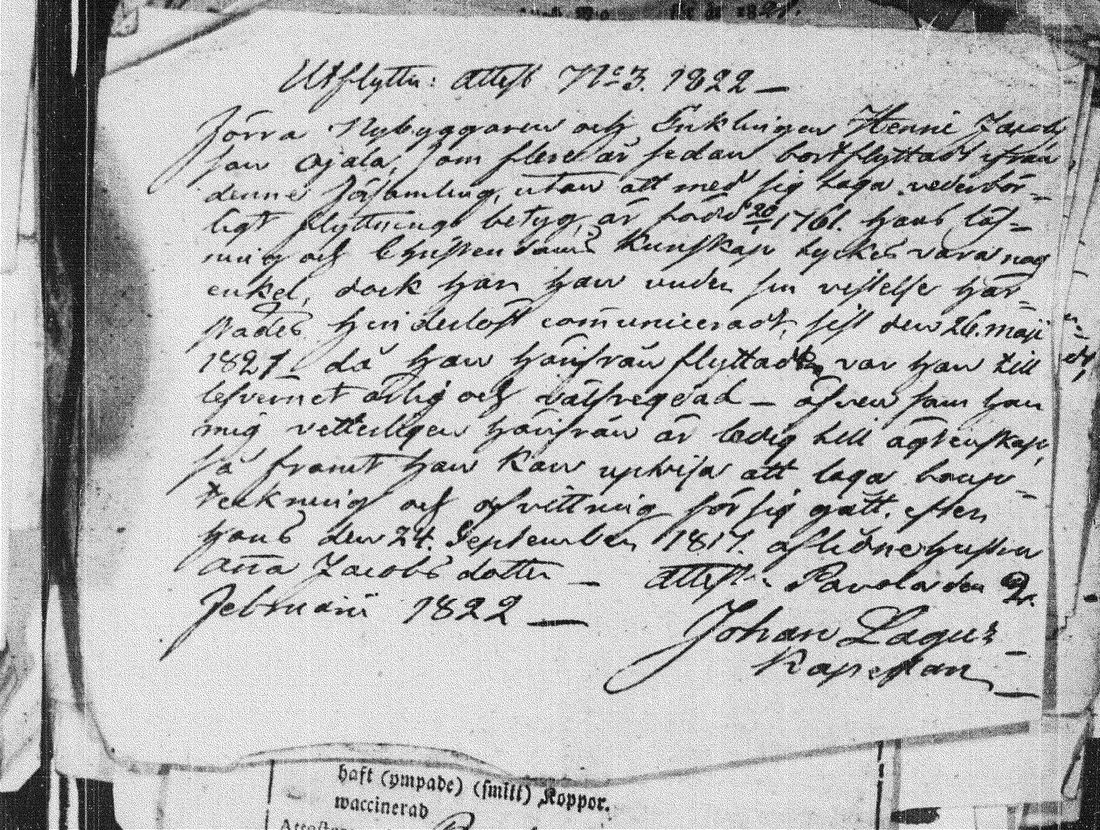 Utflyttn: Attest No 3. 1822 —
Förra Nybyggaren och Enklingen Henric Jacobs
son Ojala, som flere år sedan bortflyttadt ifrån
denne Församling, utan att med sig taga vederbör-
ligt flyttnings betyg, är född 20/1 1761. hans läs-
ning och Christendoms Kunskap tyckes vara nog
enkel, dock har han under sin vistelse här-
städes hinderlöst comuniceradt, sist den 26. maji
1821 då han härifrån flyttade, var han till
lefvernet ärlig och välfregdad — äfven som han
mig vetterligen härifrån är ledig till ägtenskap,
så framt han kan upvisa att laga boup-
teckning och afvittning för sig gått, efter
hans den 24. September 1817. aflidne hustru
Anna Jacobsdotter — Attest. Pavola den 2.
Februarii 1822 —
Johan Lagus
Kapellan
haft (ympade) (smitt) Koppor.
waccinerad